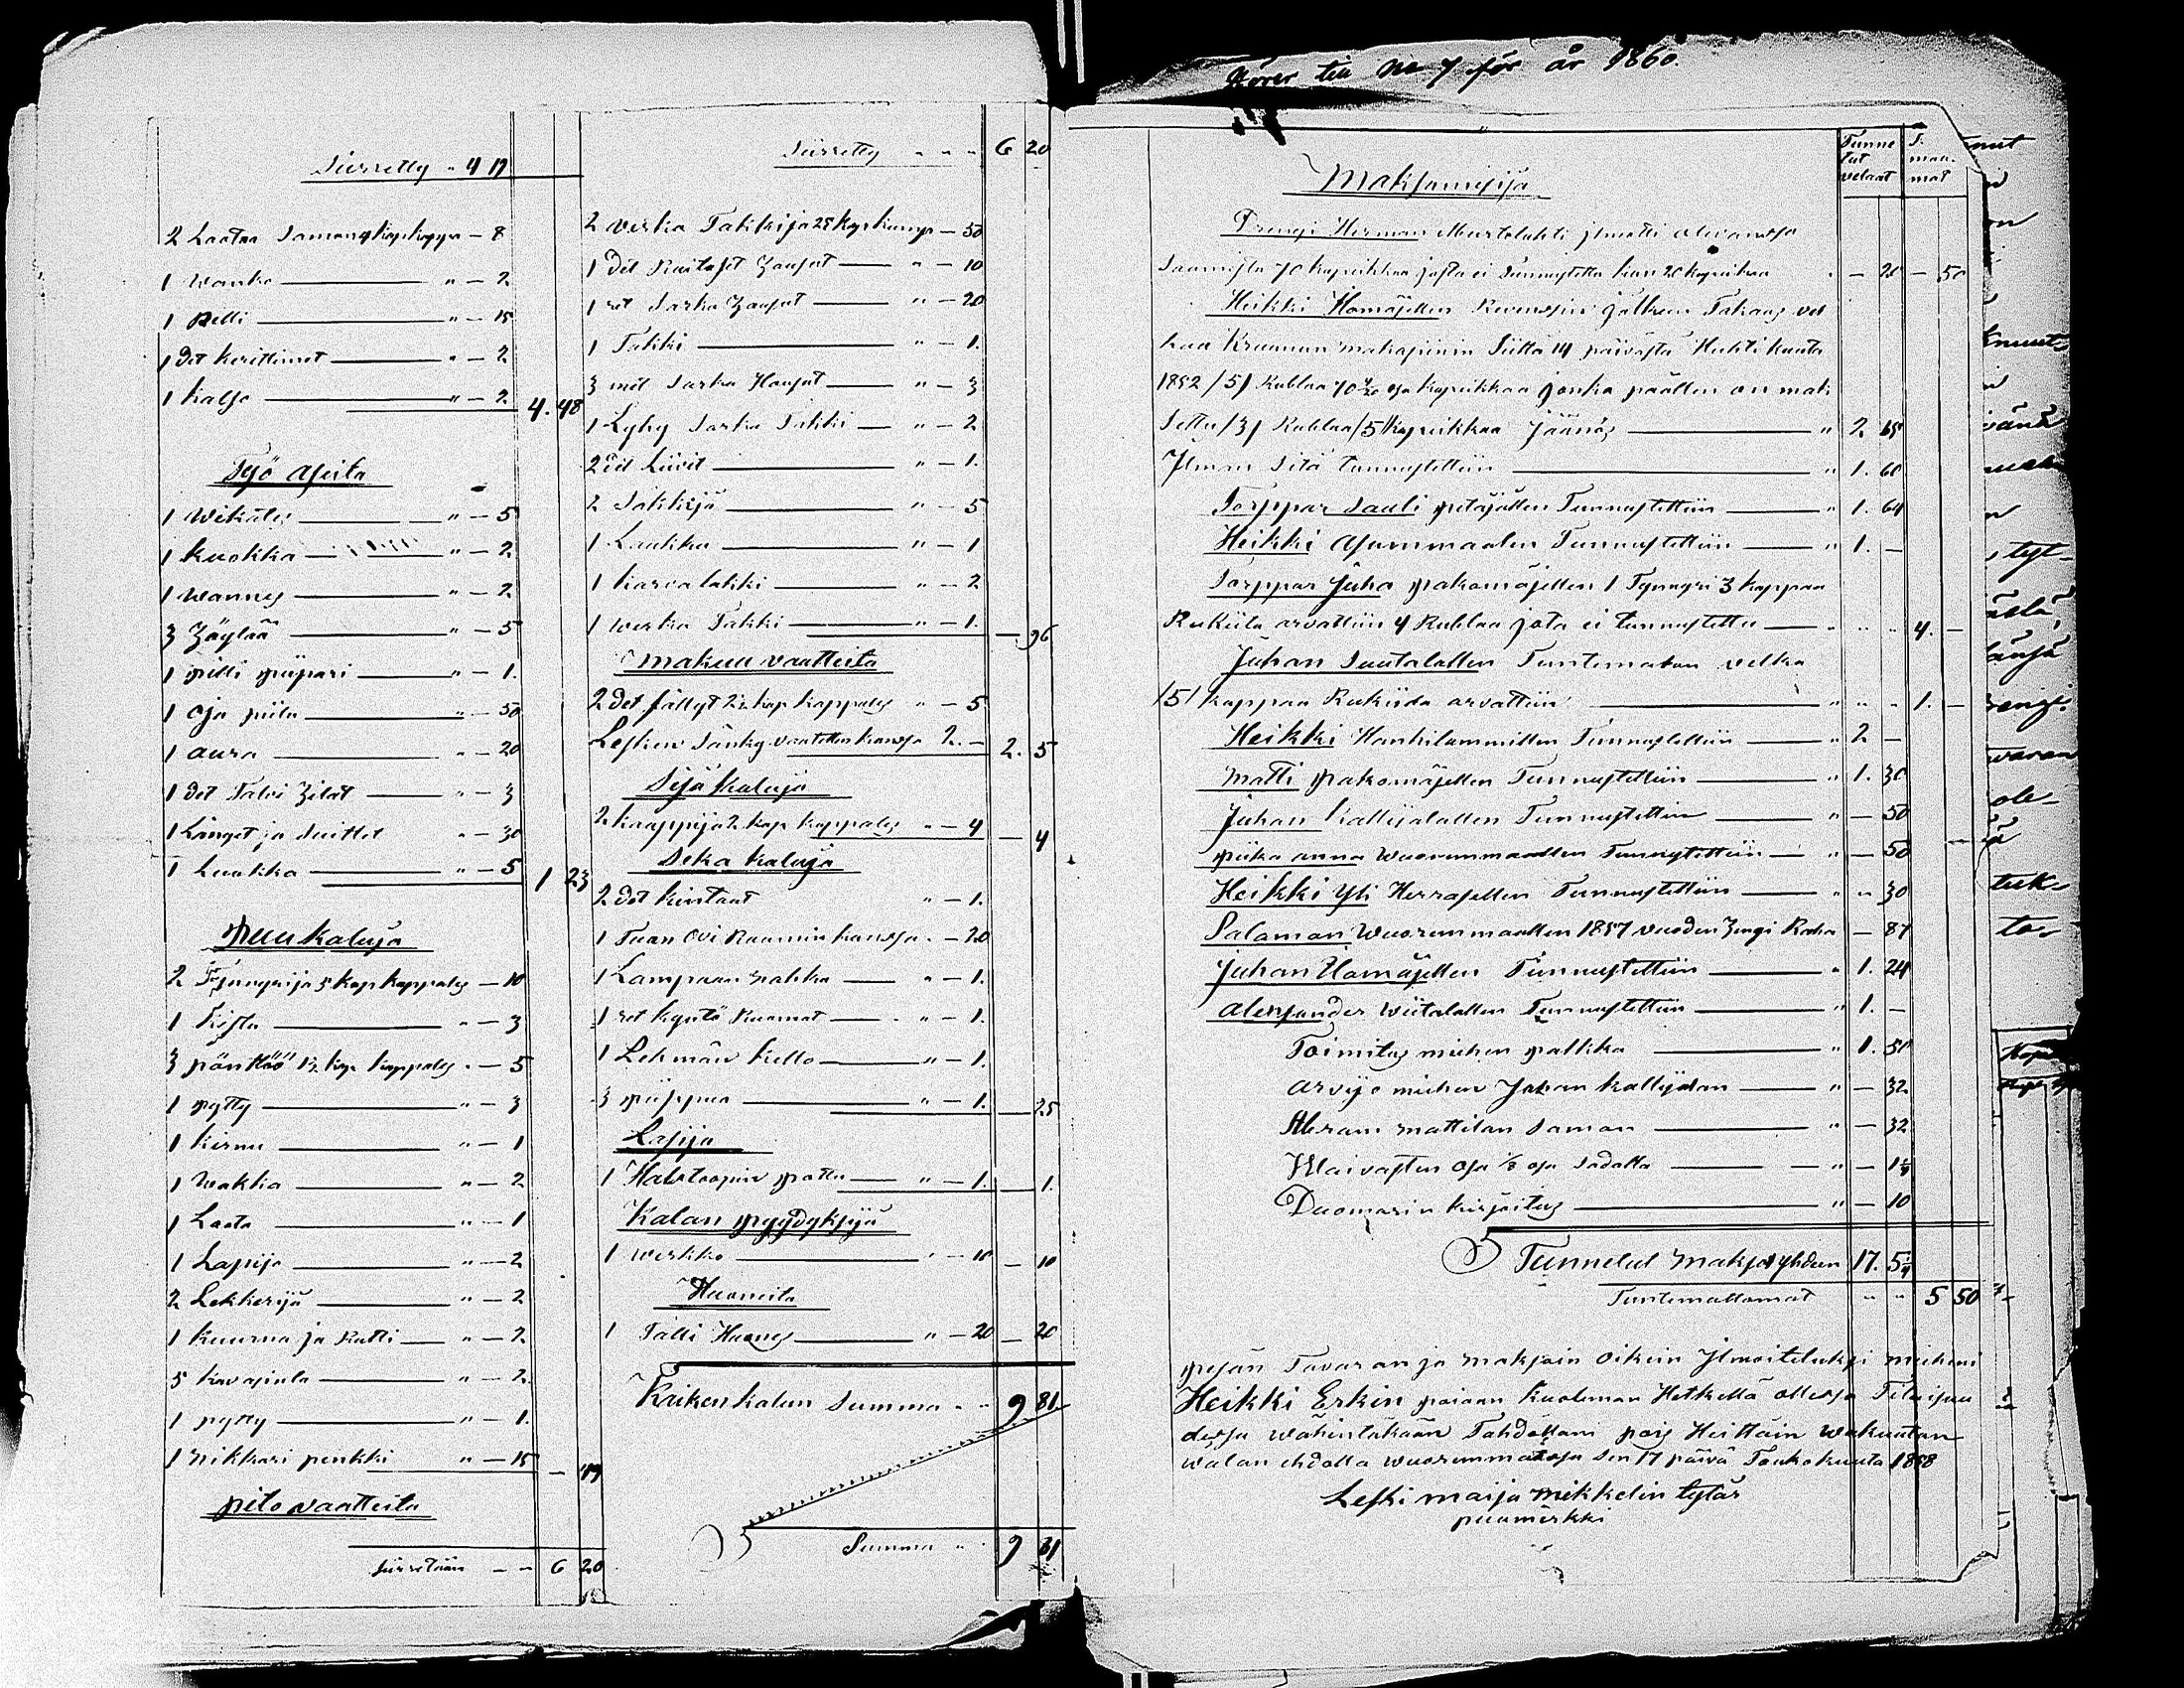 Siirretty " 4 19
2 Laataa Saman 4 kop kappa — 8
1 Wanka " — 2
1 Relli " — 15
1 det kerittimet " — 2
1 kalso " — 2 4. 48
Työ aseita
1 Wikates " — 5
1 kuokka " — 2
1 wannes " — 2
3 Häylää " — 5
1 pitti piipari " — 1.
1 oja piila " — 50
1 aura " — 20
1 det Talvi Hilat " — 3
1 Länget ja Suittet " — 30
1 Luokka " — 5 1 23
puu kaluja
2 Tynnyrija 5 kop kappales — 10
1 Kistu " — 3
3 pönttöö 1½ kop kappales " — 5
1 pytty " — 3
1 kirnu " — 1
1 Wakka " — 2
1 Laata " — 1
1 Lapijo " — 2
2 Lekkerijä " — 2
1 kuurna ja Ratti " — 2
5 kavajinla " — 2
1 pytty " — 1.
1 Nikkari penkki " — 15 — 49
pito vaatteita
siirretään " " 6 20
Siirretty " " " 6 20
2 verka Takkija 25 kop kumpi — 50
1 det Raitaset Housut " — 10
1 ret Sarka Housut " — 20
1 Takki " — 1.
3 met Sarka Housut " — 3
1 Lyhy Sarka Takki " — 2
2 det Liivit " — 1.
2 Säkkijä " — 5
1 Laukku " — 1
1 karvalakki " — 2
1 werka Takki " — 1. — 96
makuu vaatteita
2 det fällyt 2½ kop kappales " — 5
Lesken Sänky vaatetten kanssa 2. — 2. 5
Sijä kaluja
2 kaappija 2 kop kappales " — 4 — 4
Seka kaluja
2 det kintaat " — 1.
1 Tuan ovi Raamin kanssa " — 20
1 Lampaan nahka " — 1.
1 ret kyntö Ruamat " — 1.
1 Lehmän kello " — 1.
3 piippua " — 1. — 25
Lasija
1 Halvtoopin pottu " — 1. — 1.
Kalan pyydyksyä
1 werkko " — 10 — 10
Huoneita
1 Talli Huones " — 20 — 20
Kaiken kalun Summa " " 9 81.
Summa " " 9 81
Hörer till No 7 för år 1860.
Tunne
tut
velaat
T.
maa-
mat
Maksamisija
Drengi Herman Murtolahti ilmotti olevansa
Saamista 70 kopeikkaa josta ei Tunnustettu kun 20 kopeikaa " — 20 — 50
Heikki Hamäjellen Revension jälkeen Takaus vel
kaa Kruunun makasiinin Siittä 14 päivästä Huhtikuuta
1852 /5/ Rublaa 70 osa kopeikkaa jonka päällen on mak
Settu /3/ Rublaa /5/ kopeikkaa jäänös " 2 65
Ilman Sitä tunnustettiin " 1. 60
Torppar Sauli petäjällen Tunnustettiin " 1. 64
Heikki Asunmaalen Tunnustettiin " 1. —
Torppar Juha pakomäjellen 1 Tynnyri 3 kappaa
Rukiita arvattiin 4 Rublaa jota ei tunnustettu " " " 4. —
Juhan Suutalallen Tuntematon velka
/5/ kappaa Rukiida arvattiin " " " 1. —
Heikki Hankilammillen Tunnustettiin " 2 —
Matti pakomäjellen Tunnustettiin " 1. 30
Juhan kallijalallen Tunnustettiin " — 50
piika anna Wuorenmaallen Tunnustettiin " — 50
Heikki Yli Herrajellen Tunnustettiin " " 30
Salaman Wuorenmaallen 1857 vuoden Hengi Raha — 87
Juhan Hamäjellen Tunnustettiin " 1. 24
Alexsander Wiitalallen Tunnustettiin " 1. —
Toimitus miehen palkka " 1. 50
arvijo miehen Johan kallijalan " — 32
Abram mattilan Saman " — 32
Waivasten osa ⅛ osa Sadalla " — 1¼
Duomarin kirjoitus " — 10
Tunnetut maksot yhdeen 17. 5¼
Tuntemattomat " " 5 50
pesän Tavaran ja maksoin oikein Ilmoitetuksi mieheni
Heikki Erkin pojan kuoleman Hetkellä ollessa Tilaisuu
dessa wähintäkään Tahdollani pois Heittäin wakuutan
walan ehdolla wuorenmaassa Sen 17 päivä Toukokuuta 1858
Leski maija mikkelin tytär
puumerkki